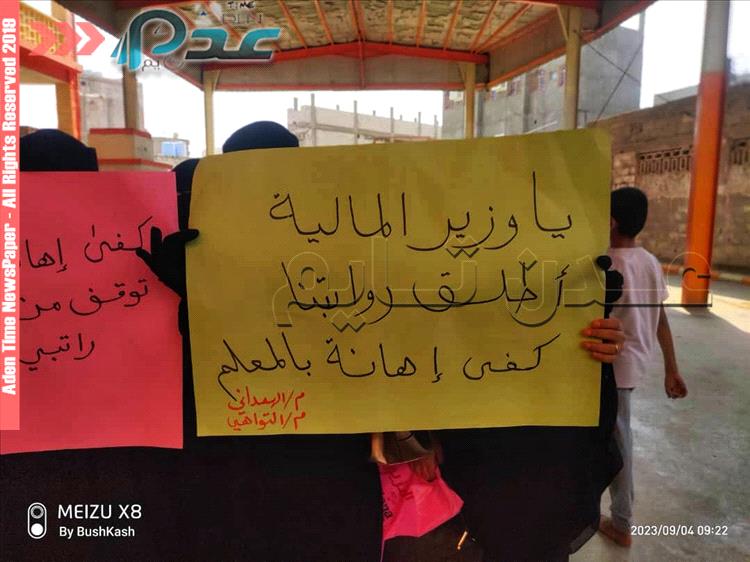 TIME
ADEN
عدن
تايم
Aden Time NewsPaper - All Rights Reserved 2018
يا وزير المالية
أطلق رواتبنا
كفى إهانة بالمعلم
م/التواهي
كفى إها
توقف من
راتبي
عدن تايم
MEIZU X8
By BushKash
2023/09/04 09:22